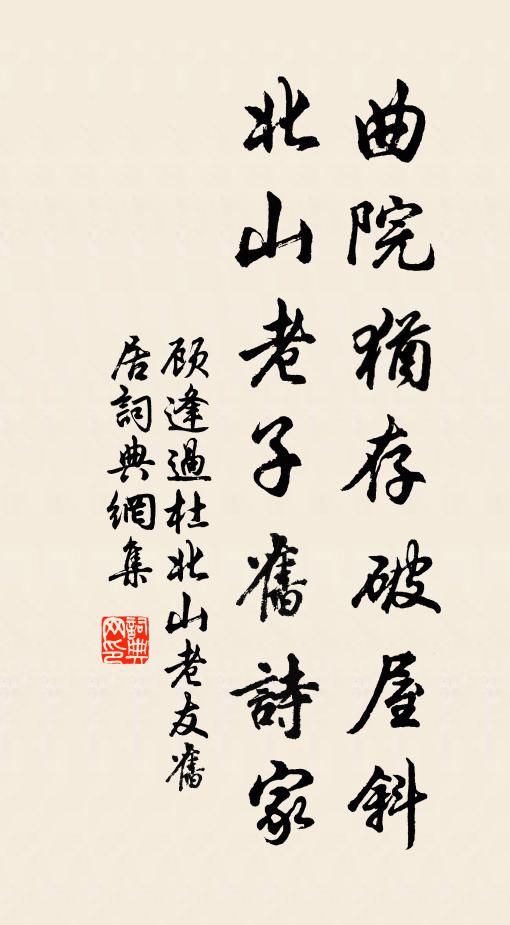 曲院猶存破屋斜
北山老子舊詩家
顾逢過杜北山老友舊
居詞典網集
詞典
网印